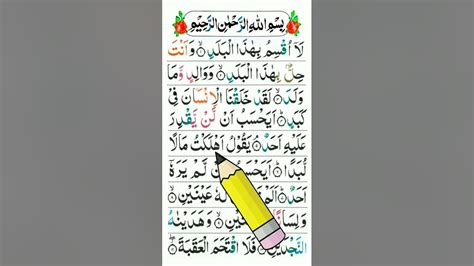 بِسْمِ اللهِ الرَّحْمٰنِ الرَّحِيْمِ
لَاۤ اُقْسِمُ بِهٰذَا الْبَلَدِ۝ وَاَنْتَ
حِلٌّۢ بِهٰذَا الْبَلَدِ۝ وَوَالِدٍ وَّمَا
وَلَدَ۝ لَقَدْ خَلَقْنَا الْاِنْسَانَ فِیْ
كَبَدٍ۝ اَیَحْسَبُ اَنْ لَّنْ یَّقْدِرَ
عَلَیْهِ اَحَدٌ۝ یَقُوْلُ اَهْلَكْتُ مَالًا
لُّبَدًا۝ اَیَحْسَبُ لَّمْ یَرَهٗۤ
اَحَدٌ۝ اَلَمْ عَیْنَیْنِ۝
وَلِسَانًا وَهَدَیْنٰهُ
النَّجْدَیْنِ۝ فَلَا اقْتَحَمَ الْعَقَبَةَ